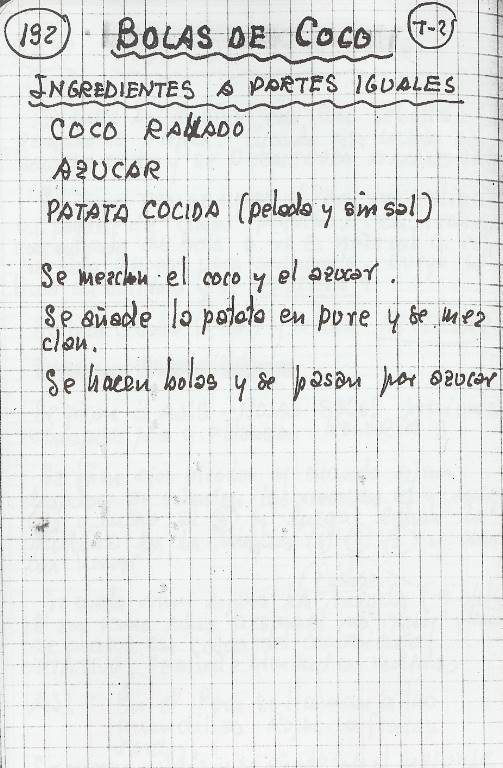 192 BOLAS DE COCO T-25
INGREDIENTES A PARTES IGUALES
COCO RALLADO
AZUCAR
PATATA COCIDA (pelada y sin sal)
Se mezclan el coco y el azucar.
Se añade la patata en pure y se mez
clan.
Se hacen bolas y se pasan por azucar